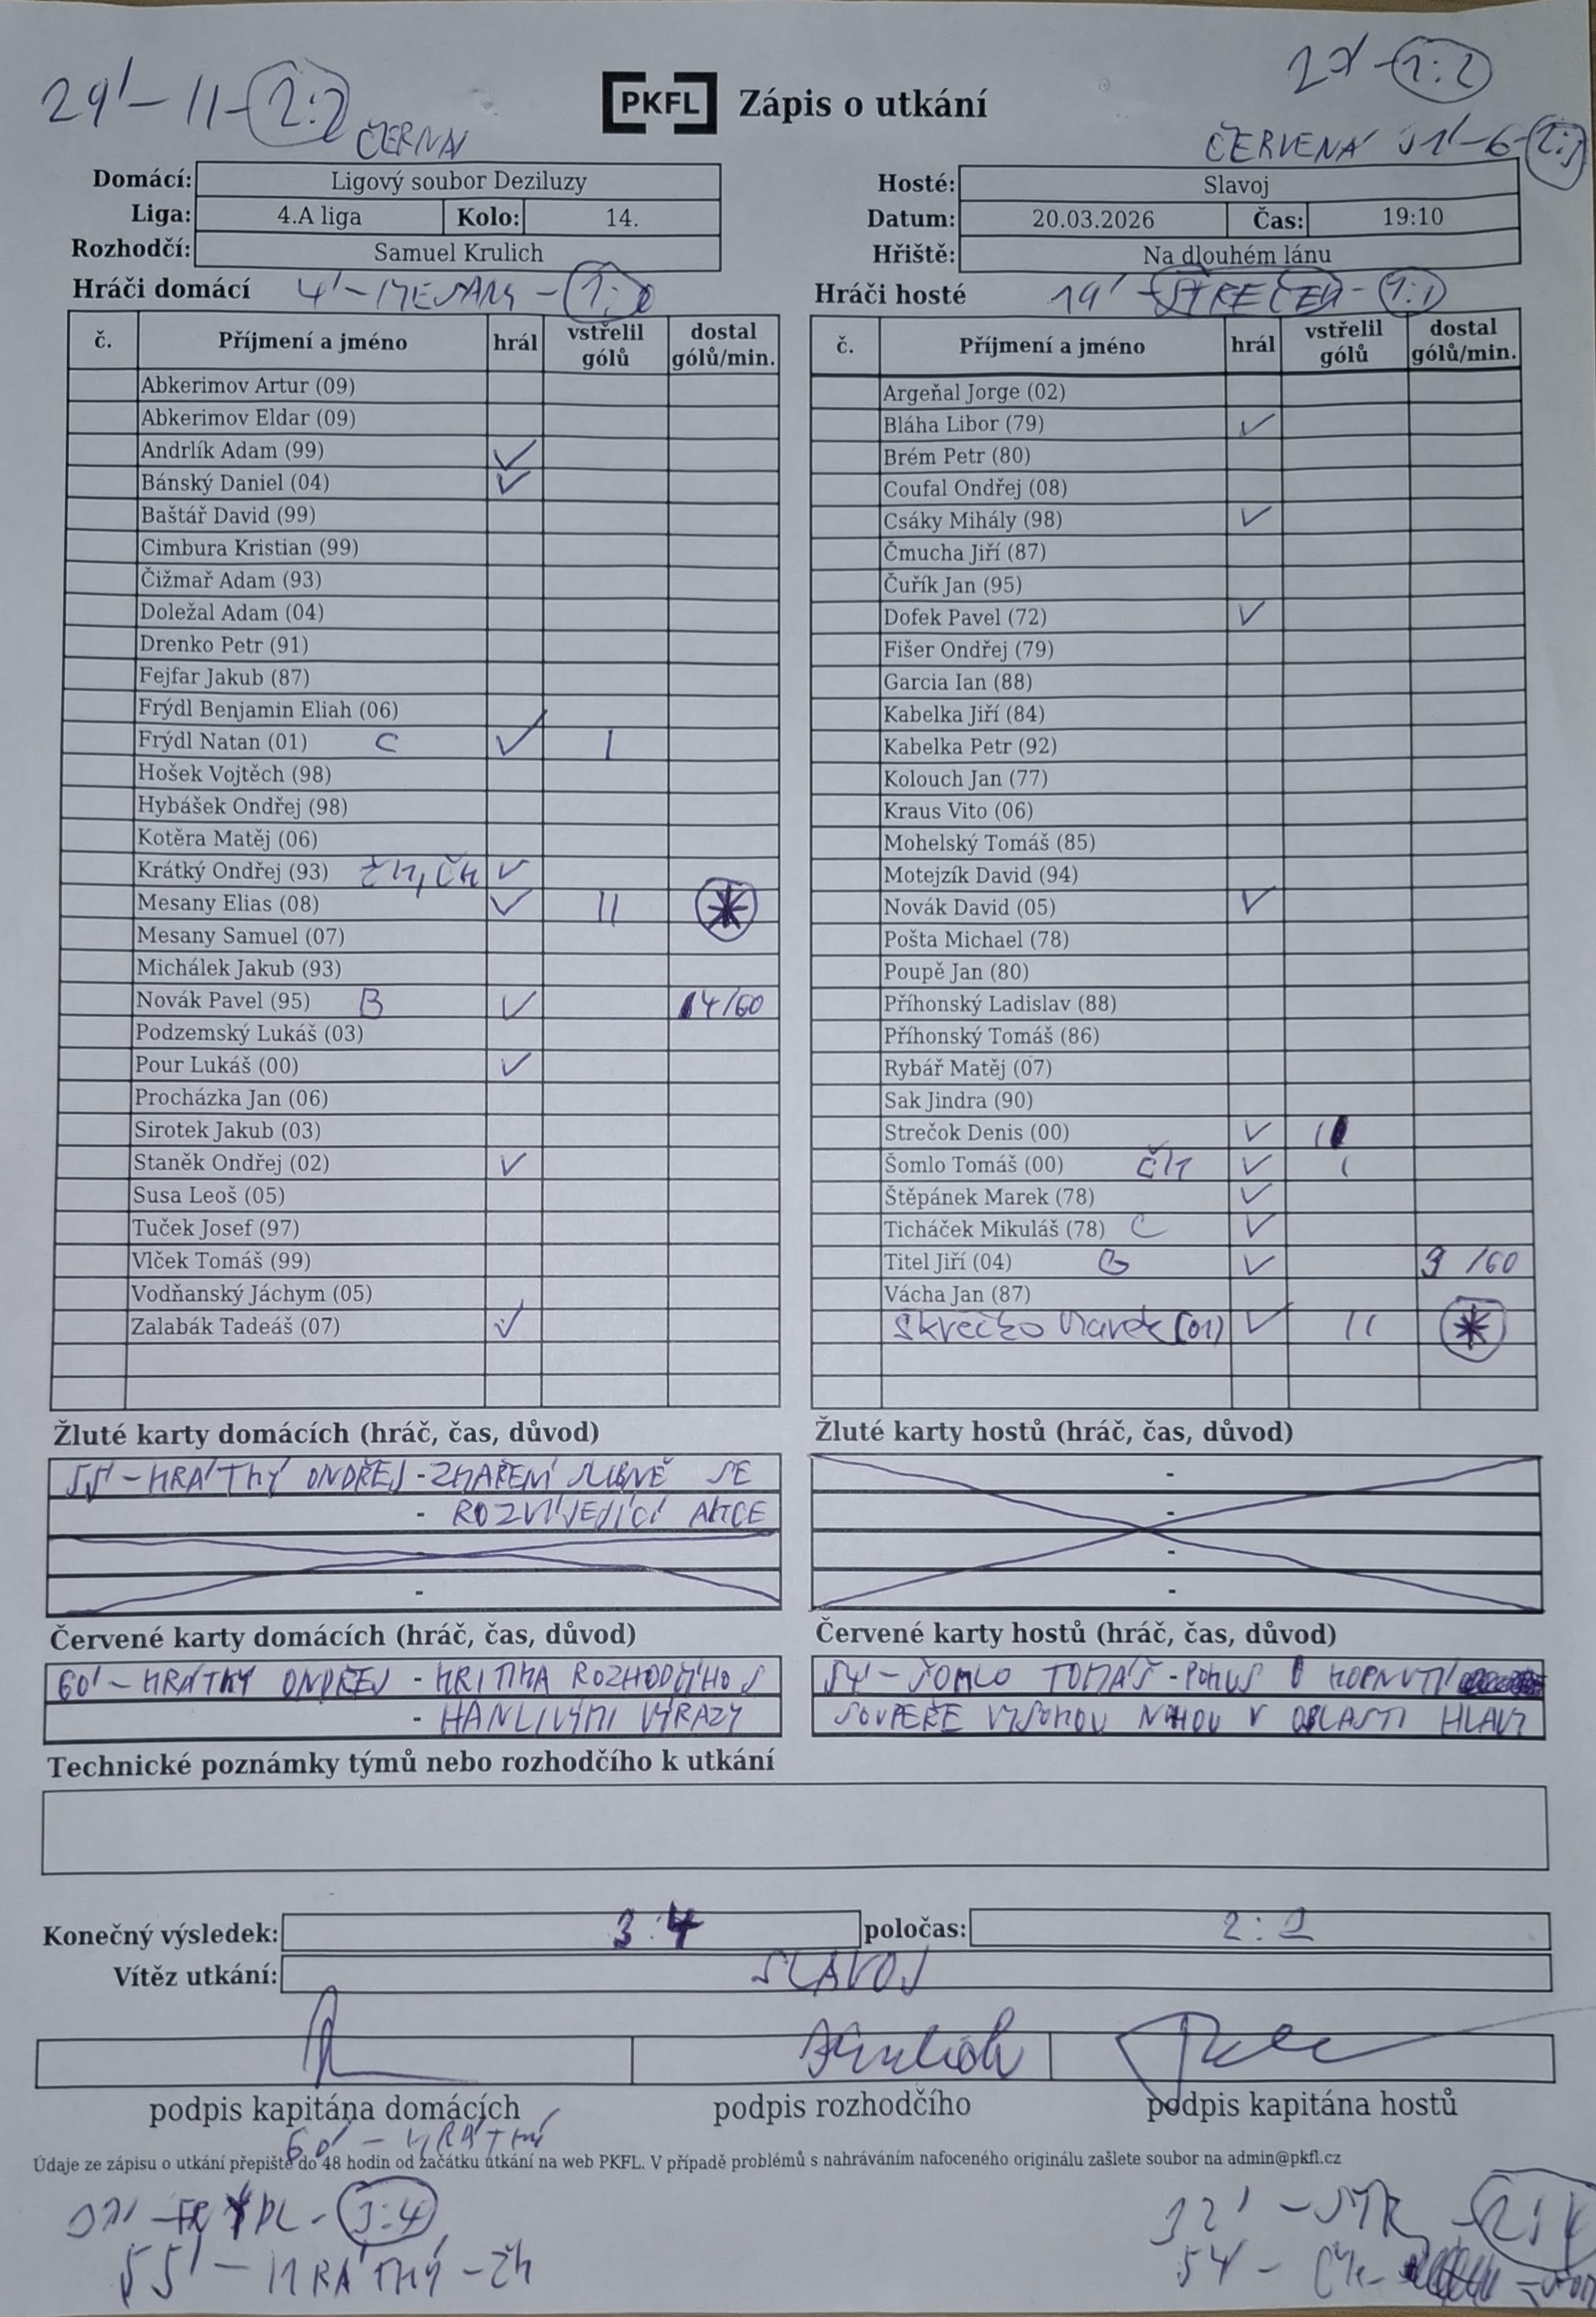 29' - 11 - 2:2
ČERNÁ
PKFL Zápis o utkání
1:2
ČERVENÁ 31' - 6 -
Domácí: Ligový soubor Deziluzy
Liga: 4.A liga Kolo: 14.
Rozhodčí: Samuel Krulich
Hosté: Slavoj
Datum: 20.03.2026 Čas: 19:10
Hřiště: Na dlouhém lánu
Hráči domácí 4' - MESANY - 1:0
č. Příjmení a jméno hrál vstřelil gólů dostal gólů/min.
Abkerimov Artur (09)
Abkerimov Eldar (09)
Andrlík Adam (99) ✓
Bánský Daniel (04) ✓
Baštář David (99)
Cimbura Kristian (99)
Čižmař Adam (93)
Doležal Adam (04)
Drenko Petr (91)
Fejfar Jakub (87)
Frýdl Benjamin Eliah (06)
Frýdl Natan (01) C ✓ |
Hošek Vojtěch (98)
Hybášek Ondřej (98)
Kotěra Matěj (06)
Krátký Ondřej (93) ŽK, ČK ✓
Mesany Elias (08) ✓ || *
Mesany Samuel (07)
Michálek Jakub (93)
Novák Pavel (95) B ✓ 4/60
Podzemský Lukáš (03)
Pour Lukáš (00) ✓
Procházka Jan (06)
Sirotek Jakub (03)
Staněk Ondřej (02) ✓
Susa Leoš (05)
Tuček Josef (97)
Vlček Tomáš (99)
Vodňanský Jáchym (05)
Zalabák Tadeáš (07) ✓
Hráči hosté 19' - 1:1
č. Příjmení a jméno hrál vstřelil gólů dostal gólů/min.
Argeňal Jorge (02)
Bláha Libor (79) ✓
Brém Petr (80)
Coufal Ondřej (08)
Csáky Mihály (98) ✓
Čmucha Jiří (87)
Čuřík Jan (95)
Dofek Pavel (72) ✓
Fišer Ondřej (79)
Garcia Ian (88)
Kabelka Jiří (84)
Kabelka Petr (92)
Kolouch Jan (77)
Kraus Vito (06)
Mohelský Tomáš (85)
Motejzík David (94)
Novák David (05) ✓
Pošta Michael (78)
Poupě Jan (80)
Příhonský Ladislav (88)
Příhonský Tomáš (86)
Rybář Matěj (07)
Sak Jindra (90)
Strečok Denis (00) ✓ |
Šomlo Tomáš (00) ČK ✓ |
Štěpánek Marek (78) ✓
Ticháček Mikuláš (78) C ✓
Titel Jiří (04) B ✓ 3 /60
Vácha Jan (87)
Skrečko Marek (01) ✓ || *
Žluté karty domácích (hráč, čas, důvod)
55' - KRÁTKÝ ONDŘEJ - ZMAŘENÍ SLIBNĚ SE
- ROZVÍJEJÍCÍ AKCE
-
Žluté karty hostů (hráč, čas, důvod)
-
-
-
-
Červené karty domácích (hráč, čas, důvod)
60' - KRÁTKÝ ONDŘEJ - KRITIKA ROZHODČÍHO S
- HANLIVÝMI VÝRAZY
Červené karty hostů (hráč, čas, důvod)
54' - ŠOMLO TOMÁŠ - POKUS O KOPNUTÍ
SOUPEŘE VYSOKOU NOHOU V OBLASTI HLAVY
Technické poznámky týmů nebo rozhodčího k utkání
Konečný výsledek: 3:4 poločas: 2:2
Vítěz utkání: SLAVOJ
podpis kapitána domácích podpis rozhodčího podpis kapitána hostů
60' - KRÁTKÝ
Údaje ze zápisu o utkání přepište do 48 hodin od začátku utkání na web PKFL. V případě problémů s nahráváním nafoceného originálu zašlete soubor na admin@pkfl.cz
FRÝDL - 3:4
55' - KRÁTKÝ - ŽK
54' - ČK -